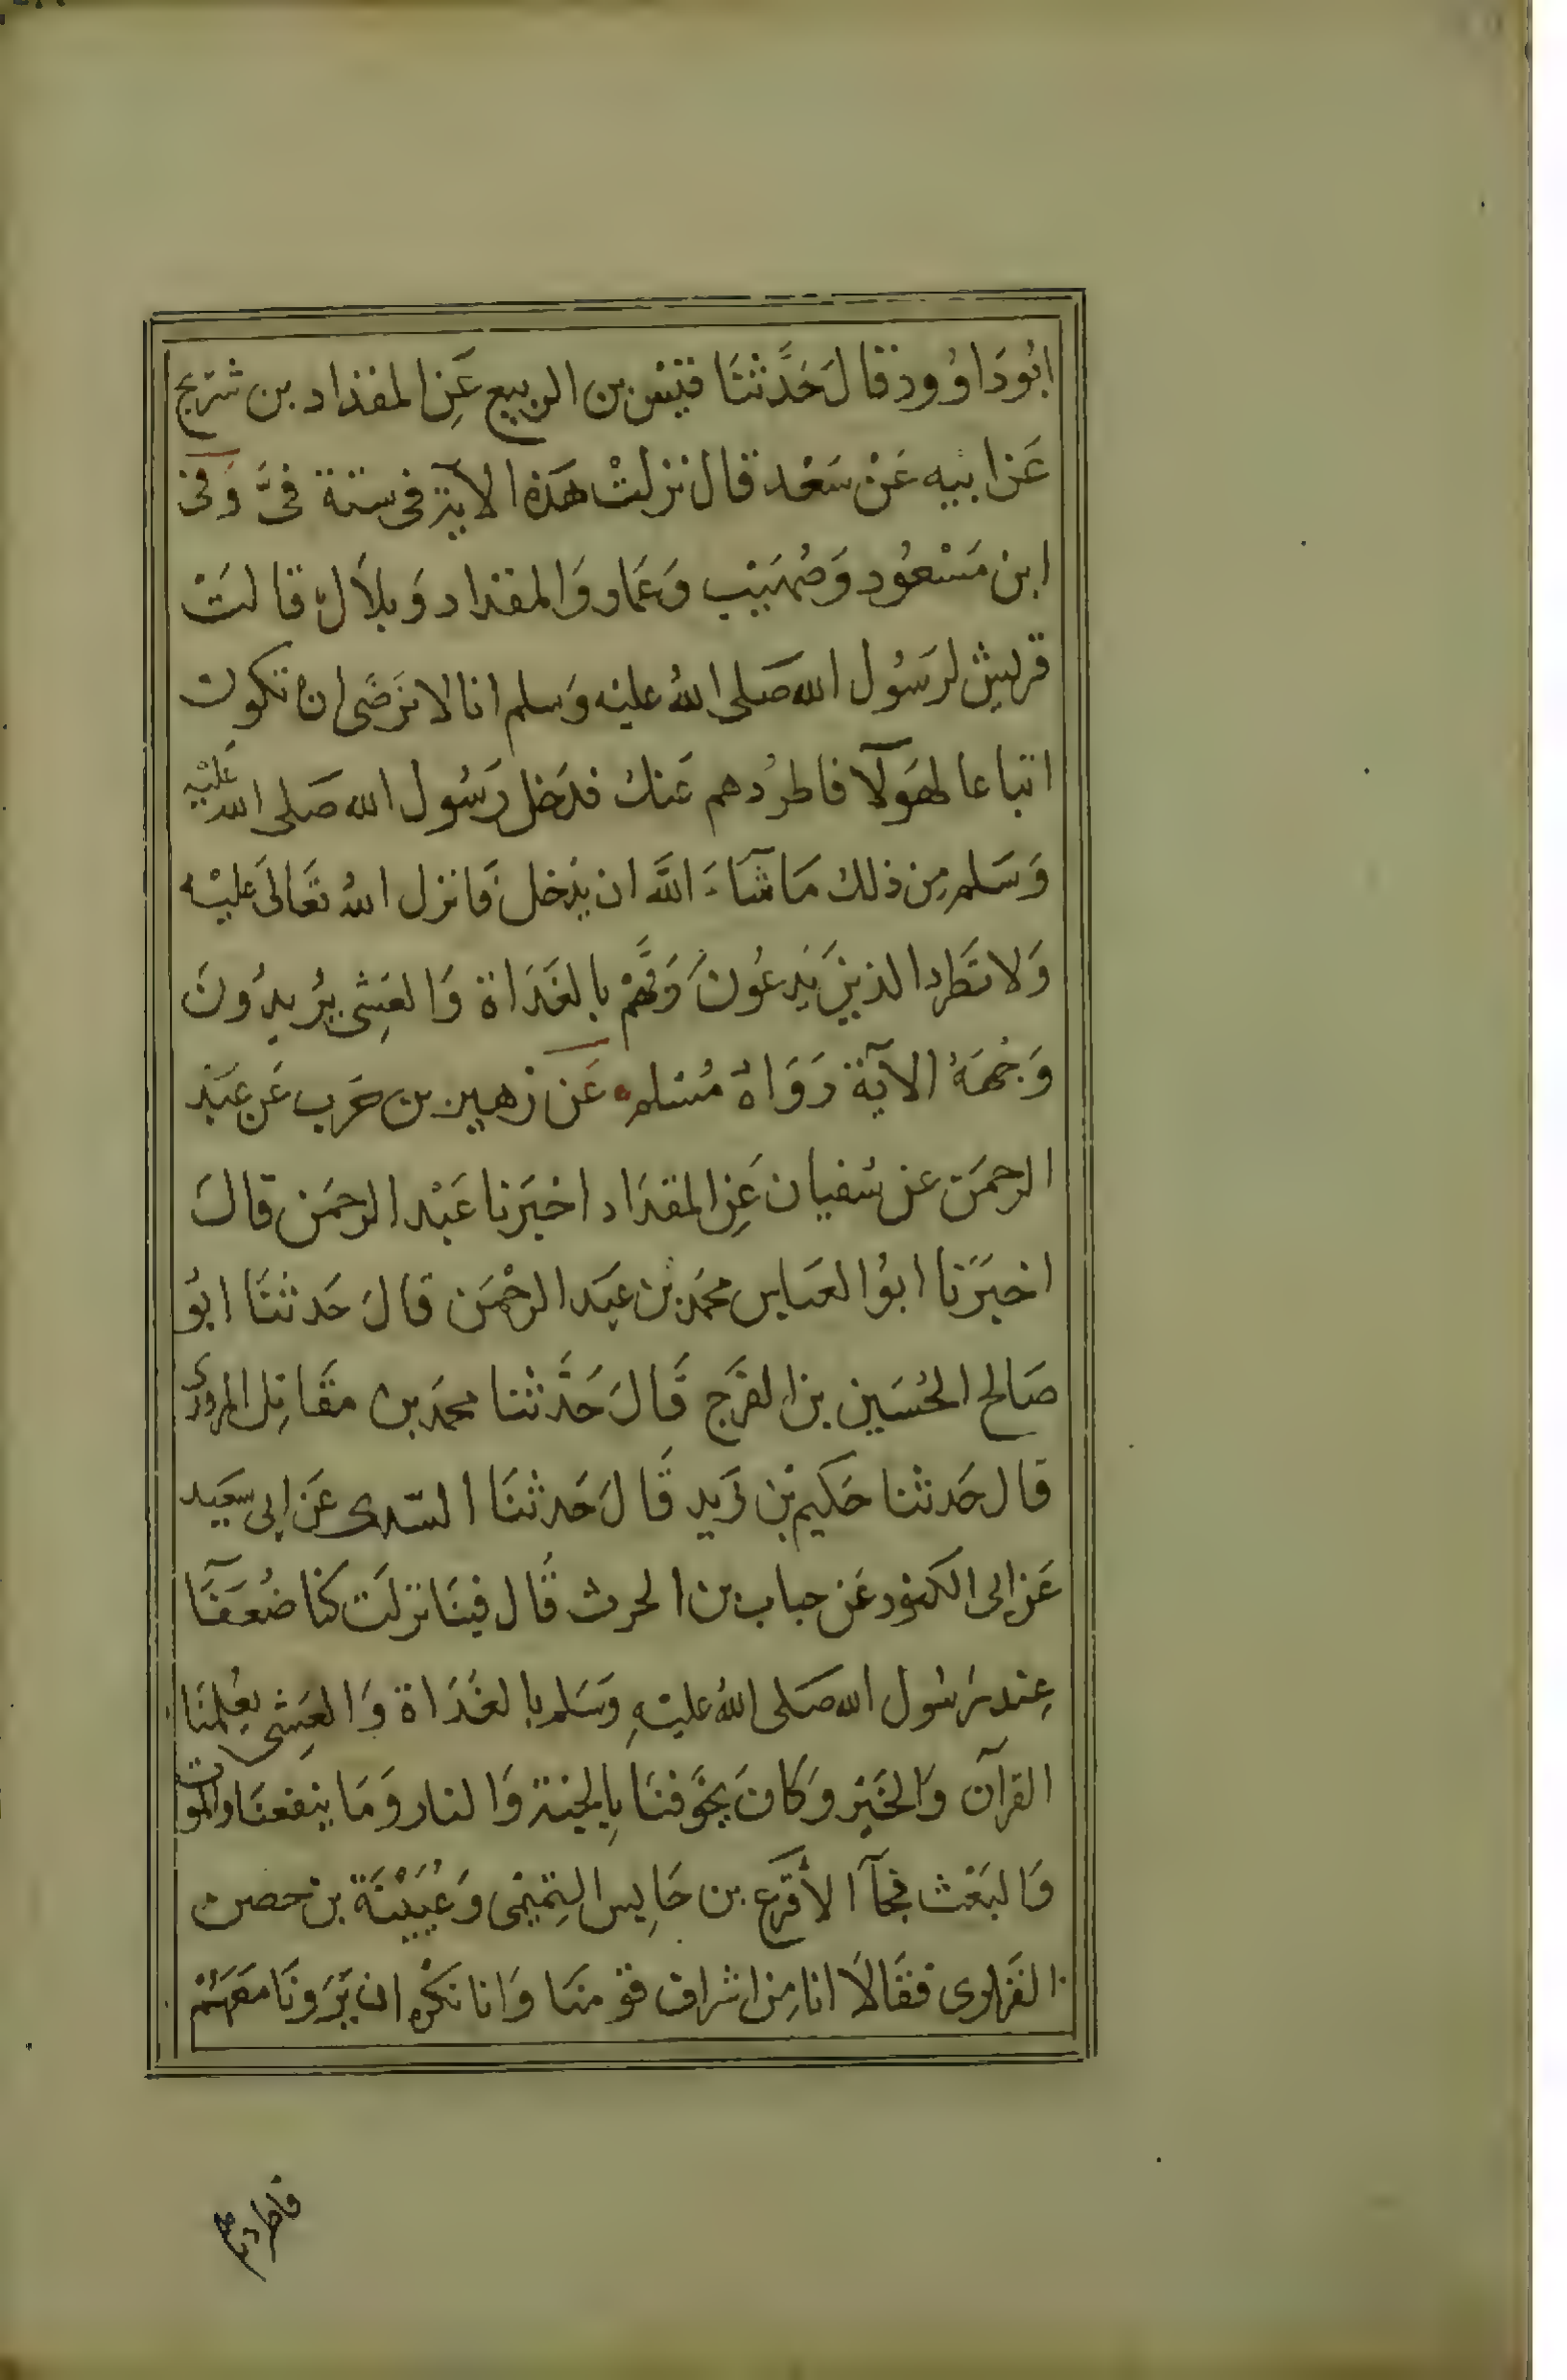 ابُودَاوُود قالَ حَدَّثنَا قيْس بن الربيع عَنِ المقداد بن شريح
عَن ابيه عَنْ سَعْد قال نزلتْ هَذه الآية فى ستة فىَّ وَفى
ابن مَسْعُود وَصُهَيْب وَعَمار وَالمقداد وَبلاَل قالتْ
قريش لرَسُول الله صَلى اللهُ عليْه وَسلم انا لا نرَضَى انْ تكون
اتباعا لهَولآَ فاطرُدهم عَنك فدَخل رَسُول الله صَلى الله عَليْه
وَسَلم مِن ذلك مَا شآءَ اللَّه ان يدْخل فَانزل اللهُ تعَالىَ عليْه
وَلا تَطرد الذينَ يَدعُونَ رَبَّهُمْ بالغَدَاة وَالعَشِى يُريدُونَ
وَجْهَهُ الآيَة رَوَاهُ مُسْلم عَن زهير بن حَرب عَن عَبْد
الرحمَن عن سُفيان عَنِ المقدَاد اخبَرنا عَبْد الرحمَن قالَ
اخبَرَنا ابوُ العَباس محمَد بن عَبَد الرحْمَن قالَ حَدثنَا ابُو
صَالح الحُسَين بن الفَرَج قَالَ حَدَّثنا محمَد بن مقَاتِل المروزى
قال حَدثنا حَكيم بْن زَيد قَالَ حَدثنَا السّدى عَن ابى سعَيد
عَن ابى الكنود عَن حباب بن الحرث قَال فينَا نزلَت كنا ضُعَفَآَ
عِند رَسُول الله صَلى اللهُ عليْهِ وَسَلم بالغَدَاة وَالعَشِى يعُلمنَا
القرآن وَالخَيْر وَكَانَ يخَوفنَا بِالجنة وَالنار وَمَا ينفعنَا والموت
وَالبَعْث فجآَ الأقرَع بن حَابِس التِميْمى وَعُيَيْنَة بن حصن
الفَزارى فقَالاَ انا مِن اشراف قوْمنَا وَانا نكْره ان يَرَونَا مَعَهَمْ
فاطردهم